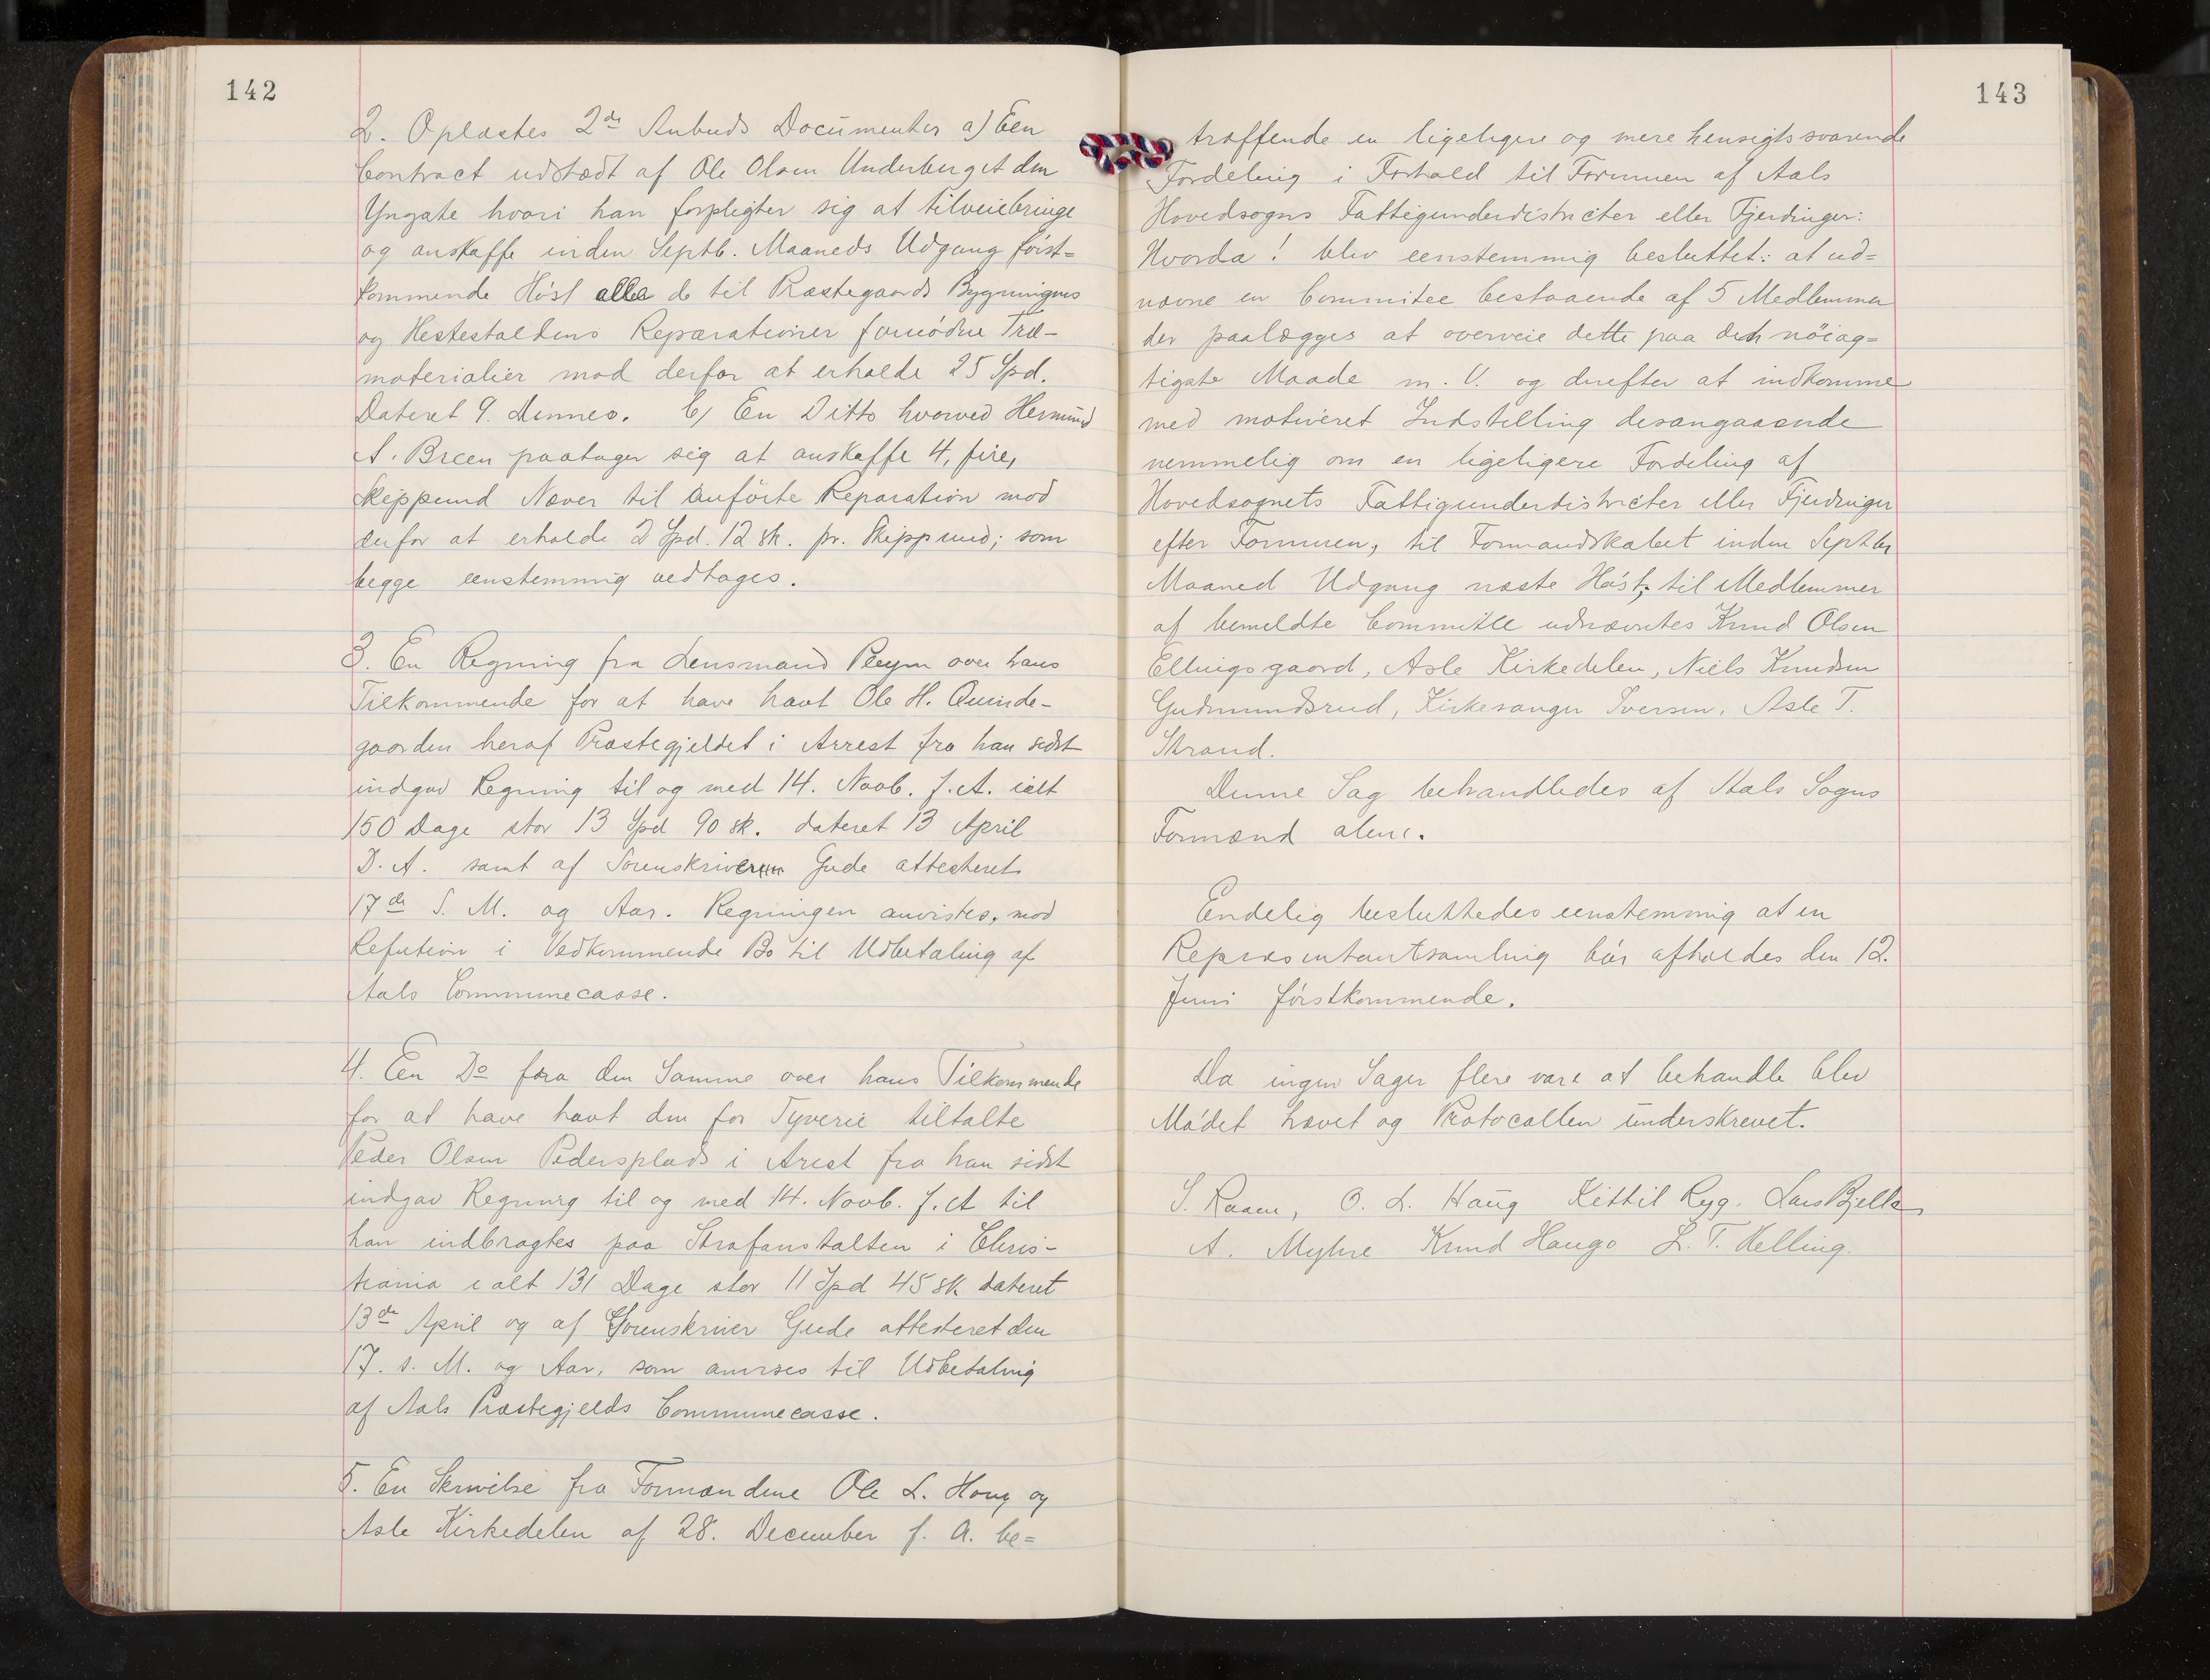 142
2. Oplæstes 2de Anbuds Documenter a) Een
Contract udstædt af Ole Olsen Underberget den
Yngste hvori han forpligter sig at tilveiebringe
og anskaffe inden Septb. Maaneds Udgang først=
kommende Høst alle de til Præstegaards Bygninges
og Hestestaldens Reparationer fornødne Træ-
materialier mod derfor at erholde 25 Spd.
Dateret 9. dennes. b) En Ditto hvorved Hermund
A. Breen paatager sig at anskaffe 4, fire,
Skippund Næver til anførte Reparation mod
derfor at erholde 2 Spd. 12 sk. pr. Skippund; som
begge eenstemmig vedtages.
3. En Regning fra Lensmand Pleym over hans
Tilkommende for at have havt Ole H. Quinde-
gaarden heraf Præstegjeldet i Arrest fra han sidst
indgav Regning til og med 14. Novb. f. A. ialt
150 Dage stor 13 Spd 90 sk. dateret 13 April
D. A. samt af Sorenskriveren Gude attesteret
17de S. M. og Aar. Regningen anvistes, mod
Refution i Vedkommende Bo til Udbetaling af
Aals Communecasse.
4. Een Do fra den Samme over hans Tilkommende
for at have havt den for Tyverie tiltalte
Peder Olsen Pedersplads i Arest fra han sidst
indgav Regning til og med 14. Novb. f. A til
han indbragtes paa Strafanstalten i Chris-
tiania ialt 131 Dage stor 11 Spd 45 sk dateret
13de April og af Sorenskriver Gude attesteret den
17. s. M. og Aar, som anvises til Udbetaling
af Aals Præstegjelds Communecasse.
5. En Skrivelse fra Formændene Ole L. Houg og
Asle Kirkedelen af 28. December f. A. be=
143
træffende en ligeligere og mere hensigtssvarende
Fordeling i Forhold til Formuen af Aals
Hovedsogns Fattigunderdistricter eller Fjerdinger:
Hvorda! blev eenstemmig besluttet: at ud=
nævne en Commitee bestaaende af 5 Medlemmer
der paalægges at overveie dette paa den nöiag=
tigste Maade m. V. og derefter at indkomme
med motiveret Indstilling desangaaende
nemmelig om en ligeligere Fordeling af
Hovedsognets Fattigunderdistricter eller Fjerdinger
efter Formuen, til Formandskabet inden Septbr
Maaned Udgang næste Høst; til Medlemmer
af bemeldte Committee udnævntes Knud Olsen
Ellingsgaard, Asle Kirkedelen, Niels Knudsen
Gudmundsrud, Kirkesanger Iversen, Asle T.
Strand.
Denne Sag behandledes af Aals Sogns
Formænd alene.
Endelig besluttedes eenstemmig at en
Repræsentantsamling bør afholdes den 12.
Juni førstkommende.
Da ingen Sager flere vare at behandle blev
Mødet hævet og Protocollen underskrevet.
S. Raaen, O. L. Haug Kittil Ryg. Lars Bjella
A. Myhre Knud Haugo L. T. Helling.